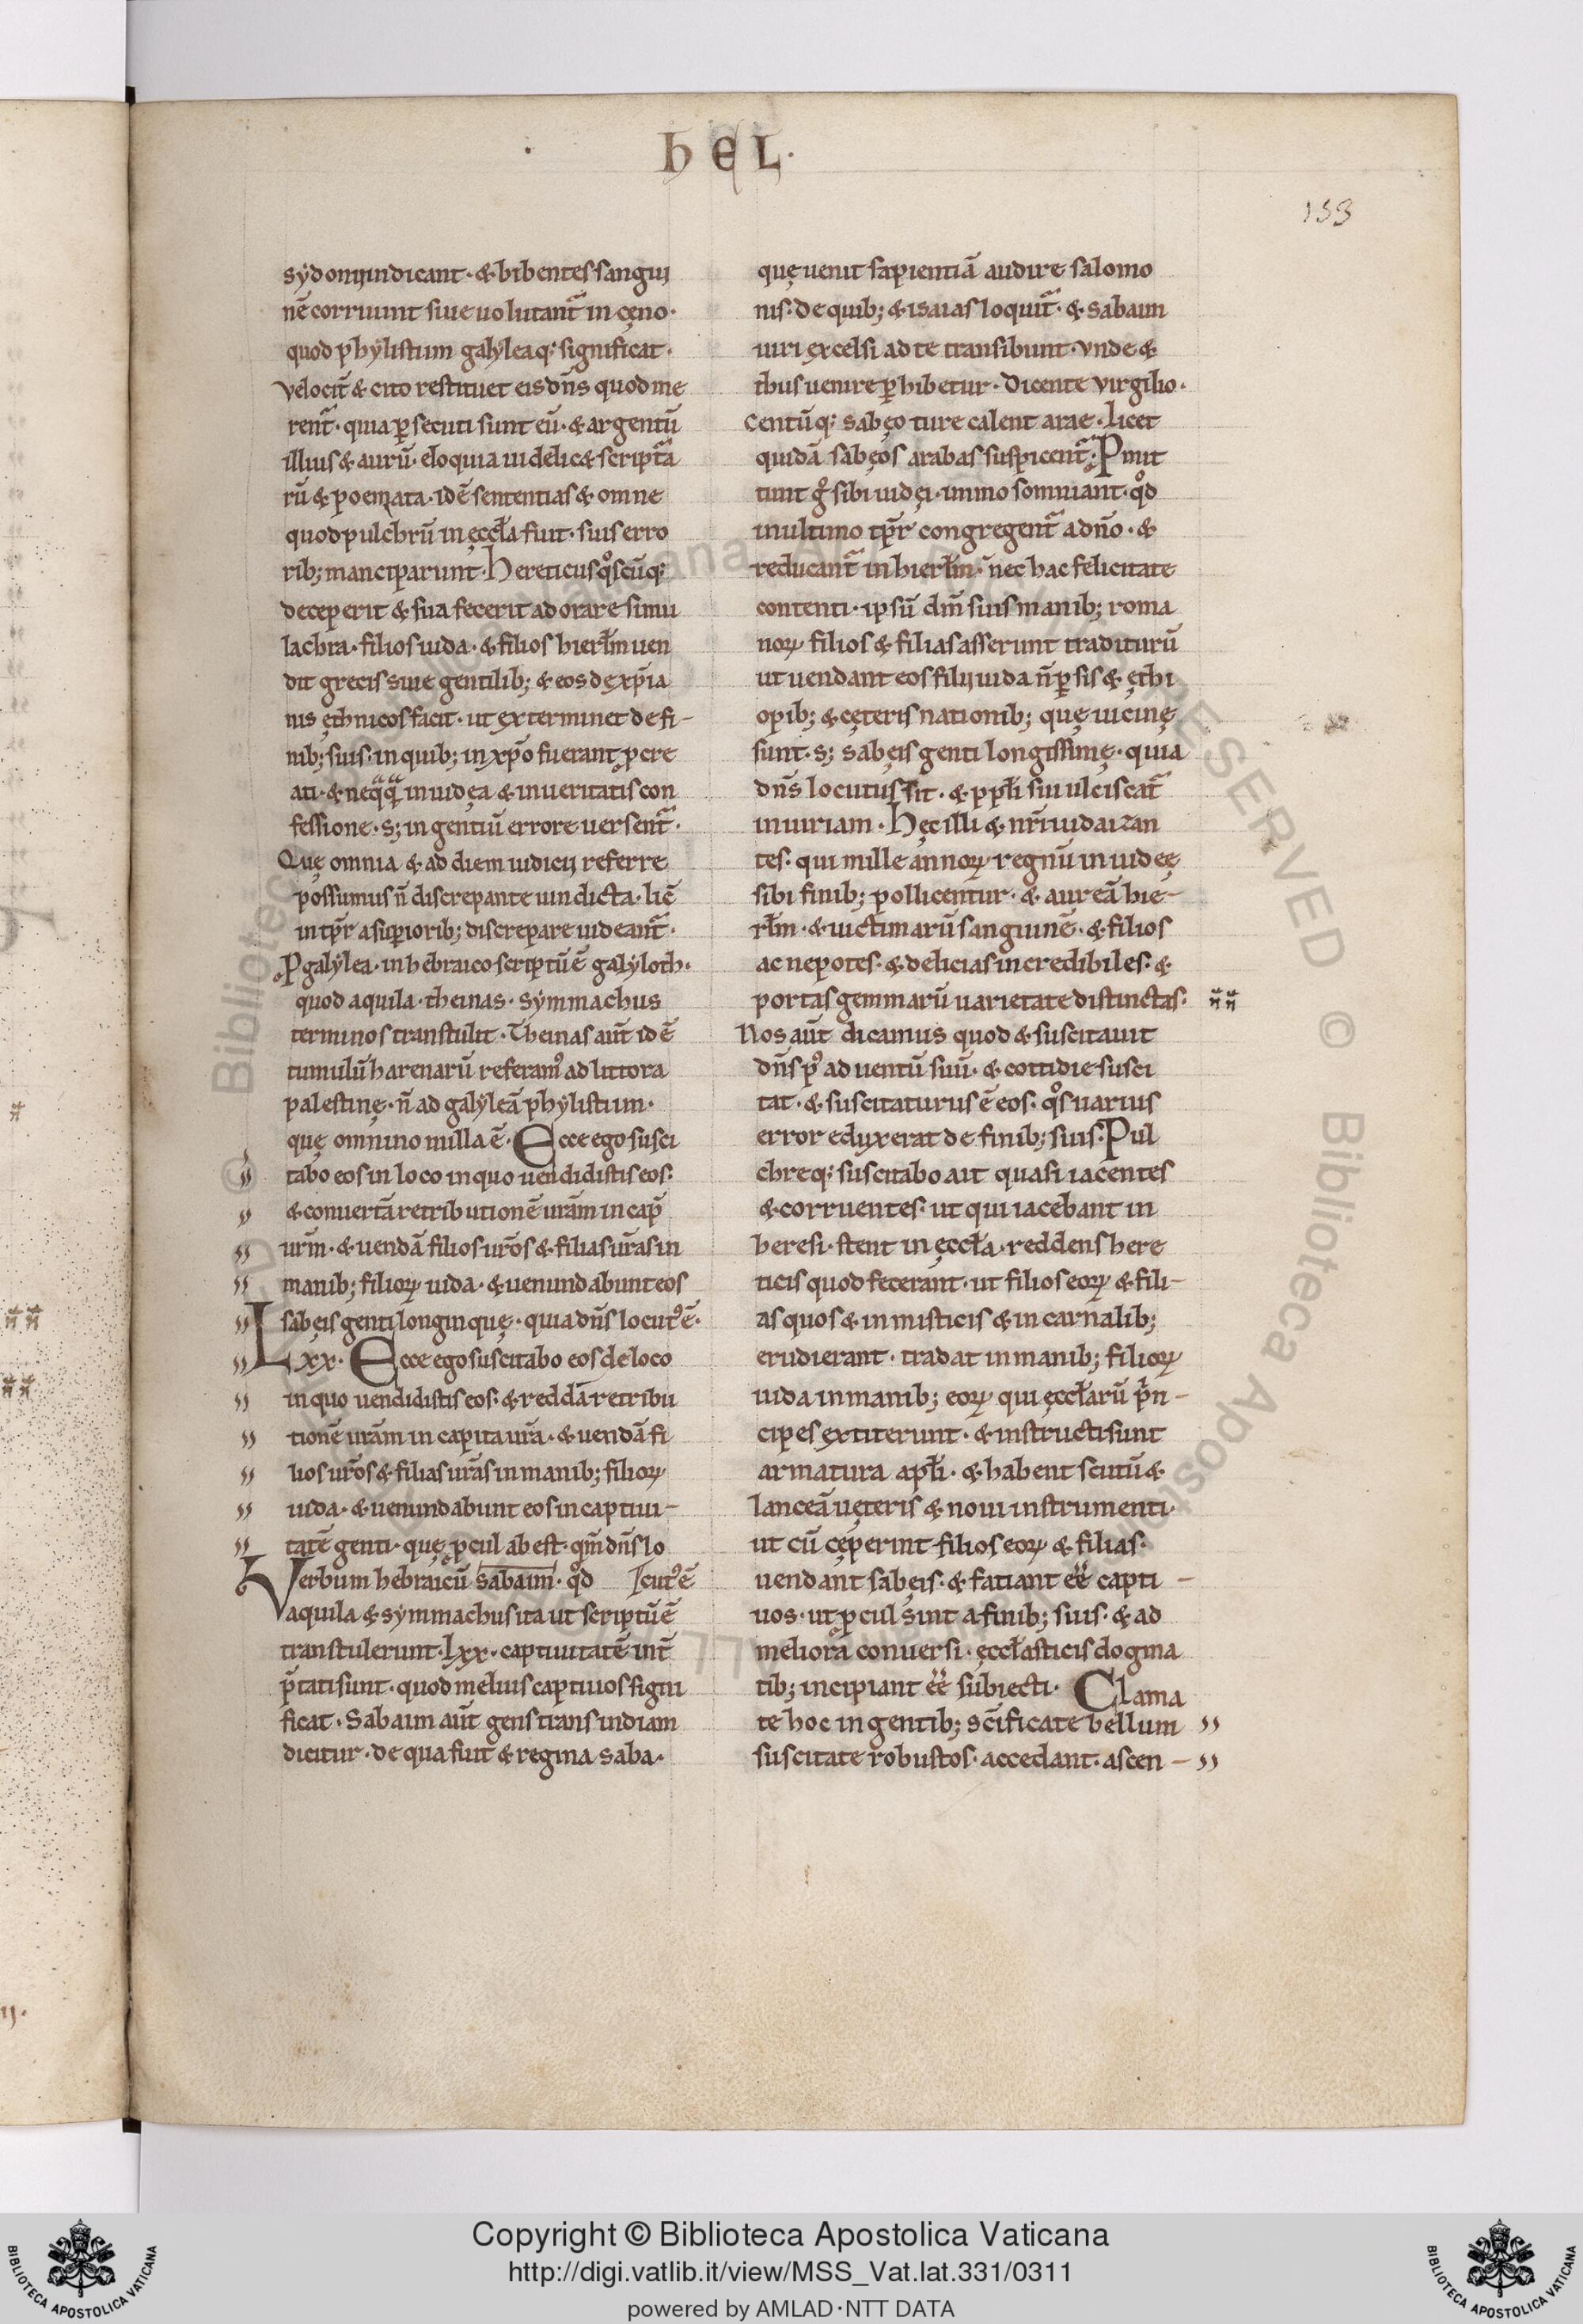 hEL.
133
sẏdonii indicant · & bibentes sangui
nē corruunt siue uolutant᷑ in cęno ·
quod phẏlistiim galẏleaq; significat ·
Velocit̄ & cito restituet eis dn̄s quod me
rent᷑ · quia ꝑsecuti sunt eū · & argentū
illius & aurū · eloquia uidelic& script᷑a
rū & poemata · idē sententias & omne
quod pulchrū in ęccła fuit · suis erro
rib; manciparunt · Hereticus qͦscūq;
deceperit & sua fecerit adorare simu
lachra · filios iuda · & filios hierłm uen
dit grecis siue gentilib; & eos de xp̄ia
nis ęthnicos facit · ut exterminet de fi-
nib; suis · in quib; in xp̄o fuerant ꝓcre
ati · & neqͣqͣ in iudęa & in ueritatis con
fessione · s; in gentiū errore uersent᷑ ·
Quę omnia & ad diem iudicij referre
possumus n̄ discrepante uindicta · lic̄
intp̄r a suꝑiorib; discrepare uideant᷑ ·
P galẏlea · in hebraico scriptū ē galẏloth ·
quod aquila · theinas · sẏmmachus
terminos transtulit · Theinas aūt idē
tumulū harenarū referam᷒ ad littora
palestinę · n̄ ad galẏleā phẏlistiim ·
quę omnino nulla ē · Ecce ego susci
tabo eos in loco in quo uendidistis eos ·
& conuertā retributionē urām in cap̄
urm̄ · & uendā filios ur̄os & filias ur̄as in
manib; filioꝝ iuda · & uenundabunt eos
sabęis genti longinquę · quia dn̄s locut᷒ ē ·
Lxx · Ecce ego suscitabo eos de loco
in quo uendidistis eos · & reddā retribu
tionē urām in capita ur̄a · & uendā fi
lios ur̄os & filias ur̄as in manib; filioꝝ
iuda · & uenundabunt eos in captiui-
tatē genti · quę ꝓcul abest · qm̄ dn̄s lo
Verbum hebraicū sabaim · qͦd cut᷒ ē
aquila & sẏmmachus ita ut scriptū ē
transtulerunt · Lxx · captiuitatē int̄
p̄tati sunt · quod melius captiuos signi
ficat · Sabaim aūt gens trans indiam
dicitur · de qua fuit & regina saba ·
quę uenit sapientiā audire salomo
nis · de quib; & isaias loquit᷑ · & sabaim
uiri excelsi ad te transibunt · vnde &
tbus uenire ꝑhibetur · Dicente virgilio ·
centūq; sabęo ture calent arae · licet
quidā sabęos arabas suspicent᷑ · Pmit
tunt g̊ sibi iudęi · immo somniant · qͦd
in ultimo tp̄r congregent᷑ a dn̄o · &
reducant᷑ in hierłm · nec hac felicitate
contenti · ipsū dm̄ suis manib; roma
noꝝ filios & filias asserunt traditurū
ut uendant eos filij iuda n̄ ꝑsis & ęthi
opib; & cęteris nationib; quę uicinę
sunt · s; sabęis genti longissimę · quia
dn̄s locutus sit · & ppłi sui ulciscat᷑
iniuriam · Hęc illi & nr̄i iudaizan
tes · qui mille annoꝝ regnū in iudęę
sibi finib; pollicentur · & aureā hie-
rłm · & uictimarū sanguinē · & filios
ac nepotes · & delicias incredibiles · &
portas gemmarū uarietate distinctas ·
Nos aūt dicamus quod & suscitauit
dn̄s p᷒ aduentū suū · & cottidie susci
tat · & suscitaturus ē eos · qͦs uarius
error eduxerat de finib; suis · Pul
chreq; suscitabo ait quasi iacentes
& corruentes · ut qui iacebant in
heresi · stent in ęccłā · reddens here
ticis quod fecerant · ut filios eoꝝ & fili-
as quos & in misticis & in carnalib;
erudierant · tradat in manib; filioꝝ
iuda in manib; eoꝝ qui ęccłarū p̄n-
cipes extiterunt · & instructi sunt
armatura apłi · & habent scutū &
lanceā ueteris & noui instrumenti ·
ut cū cęperint filios eoꝝ & filias ·
uendant sabęis · & fatiant ēē capti-
uos · ut ꝓcul sint a finib; suis · & ad
meliora conuersi · ęccłasticis dogma
tib; incipiant ēē subiecti · Clama
te hoc in gentib; scīficate bellum
suscitate robustos · accedant · ascen-
Copyright © Biblioteca Apostolica Vaticana
http://digi.vatlib.it/view/MSS_Vat.lat.331/0311
powered by AMLAD·NTT DATA
BIBLIOTECA APOSTOLICA VATICANA
BIBLIOTECA APOSTOLICA VATICANA